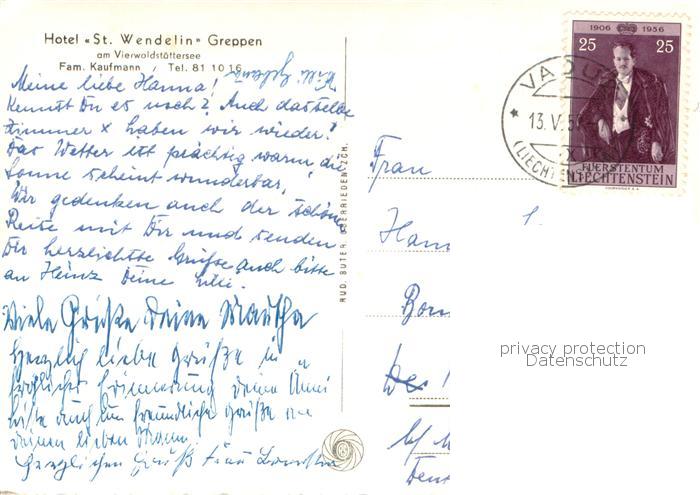 Hotel «St. Wendelin» Greppen
am Vierwaldstättersee
Fam. Kaufmann / Tel. 81 10 16
Meine liebe Hanna!
Kennst Du es noch? Auch dasselbe
Zimmer x haben wir wieder!
Das Wetter ist prächtig warm die
Sonne scheint wunderbar,
Wir gedenken auch der schönen
Reise mit Dir und senden
Dir herzlichste Grüsse auch bitte
an Heinz Deine Lilli.
Viele Grüße Deine Martha
Herzlich liebe Grüße in
fröhlicher Erinnerung Deine Änni
bitte auch freundliche Grüße an
Deinen lieben Mann
Herzlichen Gruß Frau
RUD. SUTER, OBERRIEDEN-ZCH.
1906 1956
25 25
FUERSTENTUM
LIECHTENSTEIN
VADUZ
13. V. 5
(LIECHTEN
Frau
Hann
Bonn
privacy protection
Datenschutz